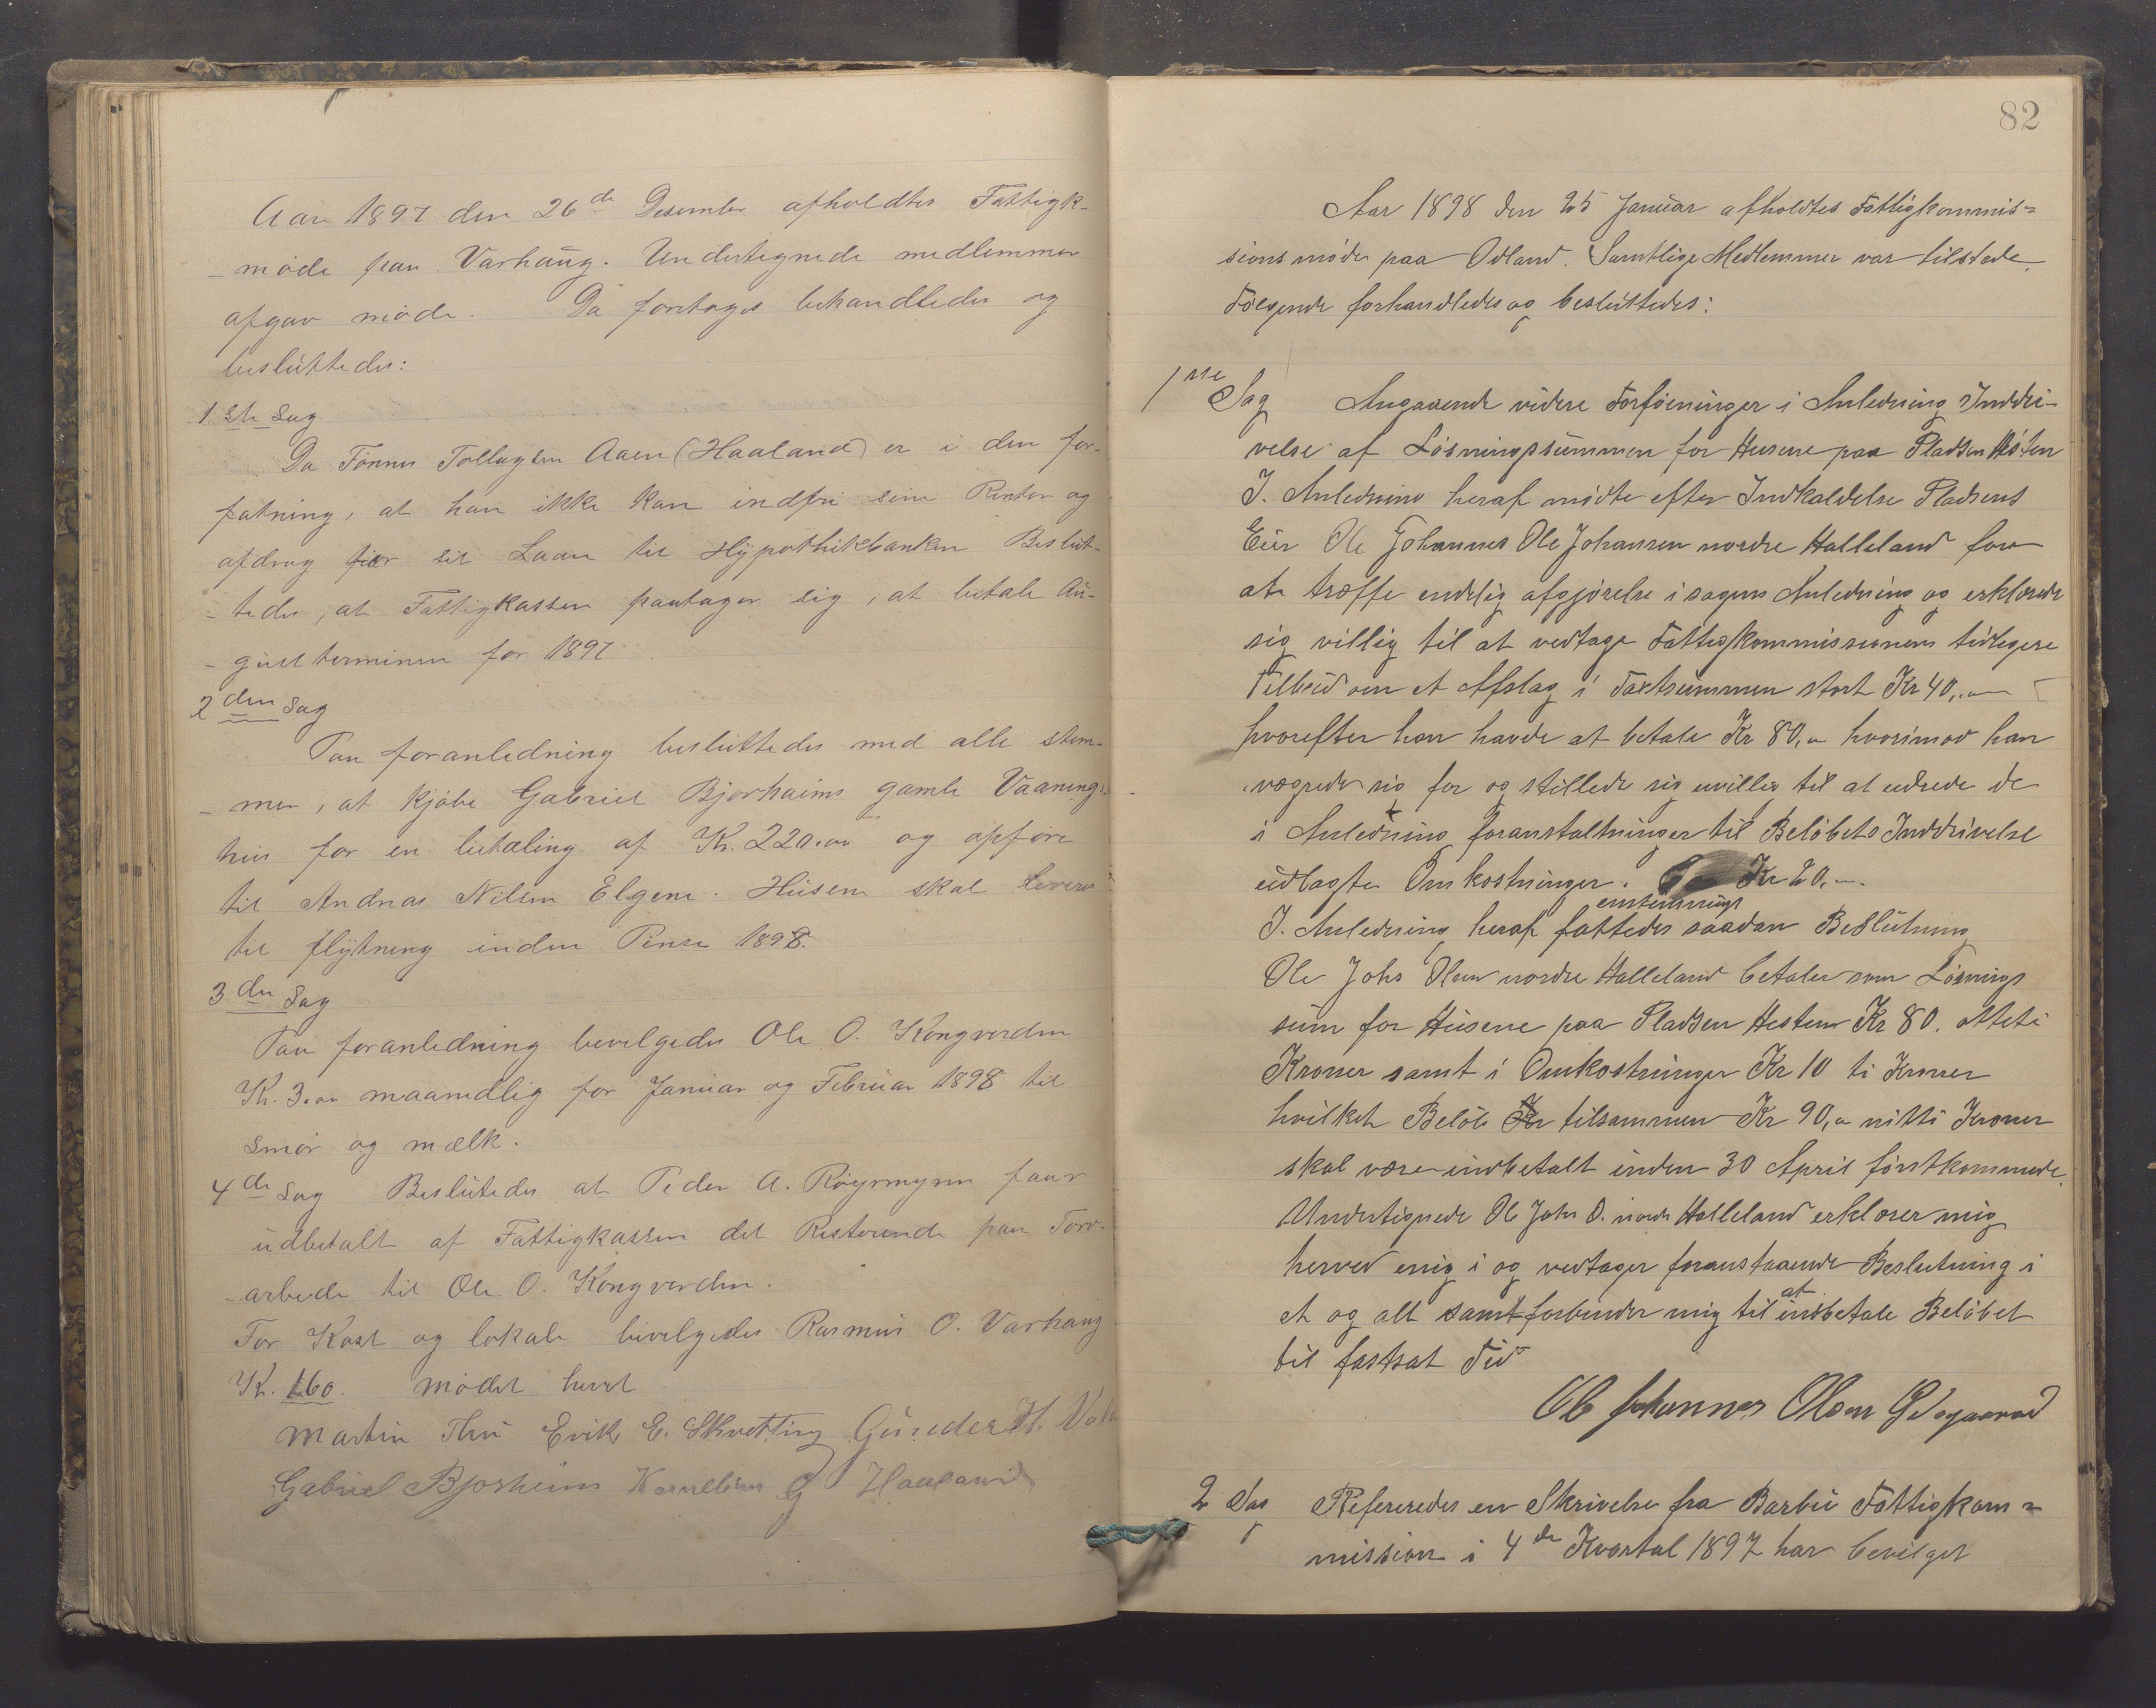 Aar 1897 den 26de Desember afholdtes Fattigk-
-møde paa Varhaug. Undertegnede medlemmer
afgav møde. Da foretoges behandledes og
besluttedes:
1ste Sag
Da Tønnes Tollagsen Aaen (Haaland) er i den for-
fatning, at han ikke kan indfri sine Renter og
afdrag for sit Laan til Hypothekbanken Beslut-
-tedes, at Fattigkassen paatager sig, at betale Au-
-gust terminen for 1897
2den Sag
Paa foranledning besluttedes med alle stem-
-mer, at kjøbe Gabriel Bjorhaims gamle Vaanings-
hus for en betaling af Kr. 220.00 og opføre
til Andreas Nilsen Elgene. Husene skal leveres
til flytning inden Pinse 1898.
3die Sag
Paa foranledning bevilgedes Ole O. Kongverden
Kr. 3.00 maanedlig for Januar og Februar 1898 til
smør og mælk.
4de Sag Beslutedes at Peder A. Røyrmyren faar
udbetalt af Fattigkassen det Resterende paa Torv-
-arbeide til Ole O. Kongverden.
For Kost og lokale bevilgedes Rasmus O. Varhaug
Kr. 160. mødet hævet
Martin Thu Erik E. Skretting Gunder H.
Gabriel Bjorheim Kornelius G Haaland
82
Aar 1898 den 25 Januar afholdtes Fattigkommis=
sionsmøde paa Odland. Samtlige Medlemmer var tilstede.
Følgende forhandledes og besluttedes:
1ste Sag Angaaende videre Forføeninger i Anledning Inddri-
velse af Løsningssummen for Husene paa Pladsen Hesten
I. Anledning heraf mødte efter Indkaldelse Pladsens
Eier Ole Johannes Ole Johansen nordre Halleland for
at træffe endelig afgjørelse i sagens Anledning og erklærede
sig villig til at vedtage Fattigkommissionens tidligere
Tilbud om et Afslag i Taxtsummen stort Kr 40,..
hvorefter han havde at betale Kr 80,- hvorimod han
vægrede sig for og stillede sig uvillig til at udrede de
i Anledning foranstaltninger til Beløbets Inddrivelse
udlagte Omkostninger. Kr 20,-.
enstemmigt
I. Anledning heraf fattedes saadan Beslutning
Ole Johs Olsen nordre Halleland betaler som Løsnings
sum for Husene paa Pladsen Hesten Kr 80. otteti
Kroner samt i Omkostninger Kr 10 ti Kroner
hvilket Beløb Kr tilsammen Kr 90,- nitti Kroner
skal være indbetalt inden 30 April førstkommende.
Undertignede Ole Johs O. nordre Halleland erklærer mig
herved enig i og vedtager foranstaaende Beslutning i
at
et og alt samt forbinder mig til indbetale Beløbet
til fastsat Tid
Ole Johannes Olsen
2 Sag Refereredes en Skrivelse fra Barbu Fattigkom=
mission i 4de Kvartal 1897 har bevilget